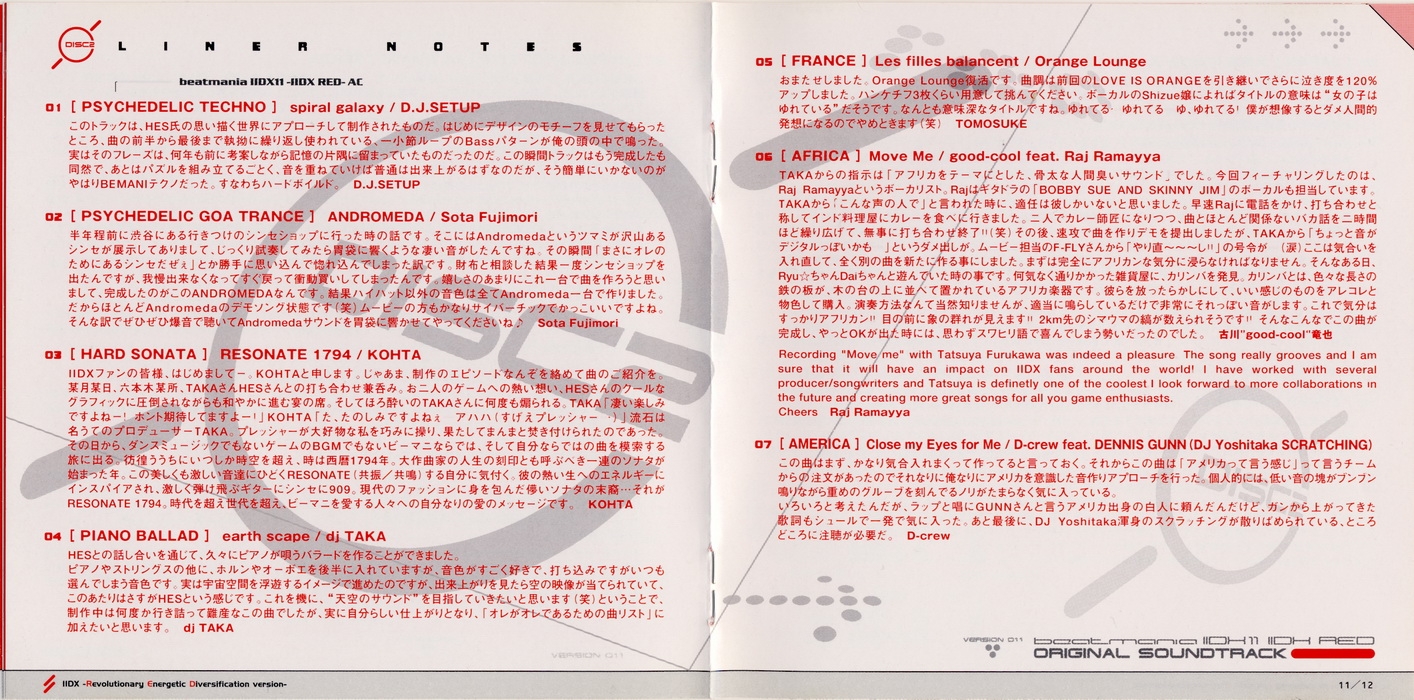 DISC2 LINER NOTES
beatmania IIDX11 -IIDX RED- AC
01 [ PSYCHEDELIC TECHNO ] spiral galaxy / D.J.SETUP
このトラックは、HES氏の思い描く世界にアプローチして制作されたものだ。はじめにデザインのモチーフを見せてもらった
ところ、曲の前半から最後まで執拗に繰り返し使われている、一小節ループのBassパターンが俺の頭の中で鳴った。
実はそのフレーズは、何年も前に考案しながら記憶の片隅に留まっていたものだったのだ。この瞬間トラックはもう完成したも
同然で、あとはパズルを組み立てるごとく、音を重ねていけば普通は出来上がるはずなのだが、そう簡単にいかないのが
やはりBEMANIテクノだった。すなわちハードボイルド。 D.J.SETUP
02 [ PSYCHEDELIC GOA TRANCE ] ANDROMEDA / Sota Fujimori
半年程前に渋谷にある行きつけのシンセショップに行った時の話です。そこにはAndromedaというツマミが沢山ある
シンセが展示してありまして、じっくり試奏してみたら胃袋に響くような凄い音がしたんですね。その瞬間「まさにオレの
ためにあるシンセだぜぇ」とか勝手に思い込んで惚れ込んでしまった訳です。財布と相談した結果一度シンセショップを
出たんですが、我慢出来なくなってすぐ戻って衝動買いしてしまったんです。嬉しさのあまりにこれ一台で曲を作ろうと思い
まして、完成したのがこのANDROMEDAなんです。結果ハイハット以外の音色は全てAndromeda一台で作りました。
だからほとんどAndromedaのデモソング状態です(笑)ムービーの方もかなりサイバーチックでかっこいいですよね。
そんな訳でぜひぜひ爆音で聴いてAndromedaサウンドを胃袋に響かせてやってくださいね♪ Sota Fujimori
03 [ HARD SONATA ] RESONATE 1794 / KOHTA
IIDXファンの皆様、はじめましてー。KOHTAと申します。じゃあま、制作のエピソードなんぞを絡めて曲のご紹介を。
某月某日、六本木某所、TAKAさんHESさんとの打ち合わせ兼呑み。お二人のゲームへの熱い想い、HESさんのクールな
グラフィックに圧倒されながらも和やかに進む宴の席。そしてほろ酔いのTAKAさんに何度も煽られる。TAKA「凄い楽しみ
ですよねー! ホント期待してますよー!」KOHTA「た、たのしみですよねぇ アハハ(すげえプレッシャー ・)」流石は
名うてのプロデューサーTAKA。プレッシャーが大好物な私を巧みに操り、果たしてまんまと焚き付けられたのであった。
その日から、ダンスミュージックでもないゲームのBGMでもないビーマニならでは、そして自分ならではの曲を模索する
旅に出る。彷徨ううちにいつしか時空を超え、時は西暦1794年。大作曲家の人生の刻印とも呼ぶべき一連のソナタが
始まった年。この美しくも激しい音達にひどくRESONATE(共振/共鳴)する自分に気付く。彼の熱い生へのエネルギーに
インスパイアされ、激しく弾け飛ぶギターにシンセに909。現代のファッションに身を包んだ儚いソナタの末裔…それが
RESONATE 1794。時代を超え世代を超え、ビーマニを愛する人々への自分なりの愛のメッセージです。 KOHTA
04 [ PIANO BALLAD ] earth scape / dj TAKA
HESとの話し合いを通じて、久々にピアノが唄うバラードを作ることができました。
ピアノやストリングスの他に、ホルンやオーボエを後半に入れていますが、音色がすごく好きで、打ち込みですがいつも
選んでしまう音色です。実は宇宙空間を浮遊するイメージで進めたのですが、出来上がりを見たら空の映像が当てられていて、
このあたりはさすがHESという感じです。これを機に、“天空のサウンド”を目指していきたいと思います(笑)ということで、
制作中は何度か行き詰って難産なこの曲でしたが、実に自分らしい仕上がりとなり、「オレがオレであるための曲リスト」に
加えたいと思います。 dj TAKA
VERSION 011
IIDX -Revolutionary Energetic Diversification version-
05 [ FRANCE ] Les filles balancent / Orange Lounge
おまたせしました。Orange Lounge復活です。曲調は前回のLOVE IS ORANGEを引き継いでさらに泣き度を120%
アップしました。ハンケチーフ3枚くらい用意して挑んでください。ボーカルのShizue嬢によればタイトルの意味は“女の子は
ゆれている”だそうです。なんとも意味深なタイトルですね。ゆれてる・ゆれてる ゆ、ゆれてる! 僕が想像するとダメ人間的
発想になるのでやめときます(笑) TOMOSUKE
06 [ AFRICA ] Move Me / good-cool feat. Raj Ramayya
TAKAからの指示は「アフリカをテーマにとした、骨太な人間臭いサウンド」でした。今回フィーチャリングしたのは、
Raj Ramayyaというボーカリスト。Rajはギタドラの「BOBBY SUE AND SKINNY JIM」のボーカルも担当しています。
TAKAから「こんな声の人で」と言われた時に、適任は彼しかいないと思いました。早速Rajに電話をかけ、打ち合わせと
称してインド料理屋にカレーを食べに行きました。二人でカレー師匠になりつつ、曲とほとんど関係ないバカ話を二時間
ほど繰り広げて、無事に打ち合わせ終了!!(笑)その後、速攻で曲を作りデモを提出しましたが、TAKAから「ちょっと音が
デジタルっぽいかも 」というダメ出しが。ムービー担当のF-FLYさんから「やり直〜〜〜し!!」の号令が (涙)ここは気合いを
入れ直して、全く別の曲を新たに作る事にしました。まずは完全にアフリカンな気分に浸らなければなりません。そんなある日、
Ryu☆ちゃんDaiちゃんと遊んでいた時の事です。何気なく通りかかった雑貨屋に、カリンバを発見。カリンバとは、色々な長さの
鉄の板が、木の台の上に並べて置かれているアフリカ楽器です。彼らを放ったらかしにして、いい感じのものをアレコレと
物色して購入。演奏方法なんて当然知りませんが、適当に鳴らしているだけで非常にそれっぽい音がします。これで気分は
すっかりアフリカン!! 目の前に象の群れが見えます!! 2km先のシマウマの縞が数えられそうです!! そんなこんなでこの曲が
完成し、やっとOKが出た時には、思わずスワヒリ語で喜んでしまう勢いだったのでした。 古川"good-cool"竜也
Recording "Move me" with Tatsuya Furukawa was indeed a pleasure The song really grooves and I am
sure that it will have an impact on IIDX fans around the world! I have worked with several
producer/songwriters and Tatsuya is definetly one of the coolest I look forward to more collaborations in
the future and creating more great songs for all you game enthusiasts.
Cheers Raj Ramayya
07 [ AMERICA ] Close my Eyes for Me / D-crew feat. DENNIS GUNN (DJ Yoshitaka SCRATCHING)
この曲はまず、かなり気合入れまくって作ってると言っておく。それからこの曲は「アメリカって言う感じ」って言うチーム
からの注文があったのでそれなりに俺なりにアメリカを意識した音作りアプローチを行った。個人的には、低い音の塊がブンブン
鳴りながら重めのグルーブを刻んでるノリがたまらなく気に入っている。
いろいろと考えたんだが、ラップと唱にGUNNさんと言うアメリカ出身の白人に頼んだんだけど、ガンから上がってきた
歌詞もシュールで一発で気に入った。あと最後に、DJ Yoshitaka渾身のスクラッチングが散りばめられている、ところ
どころに注聴が必要だ。 D-crew
VERSION 011 beatmania IIDX11 IIDX RED
ORIGINAL SOUNDTRACK
11/12